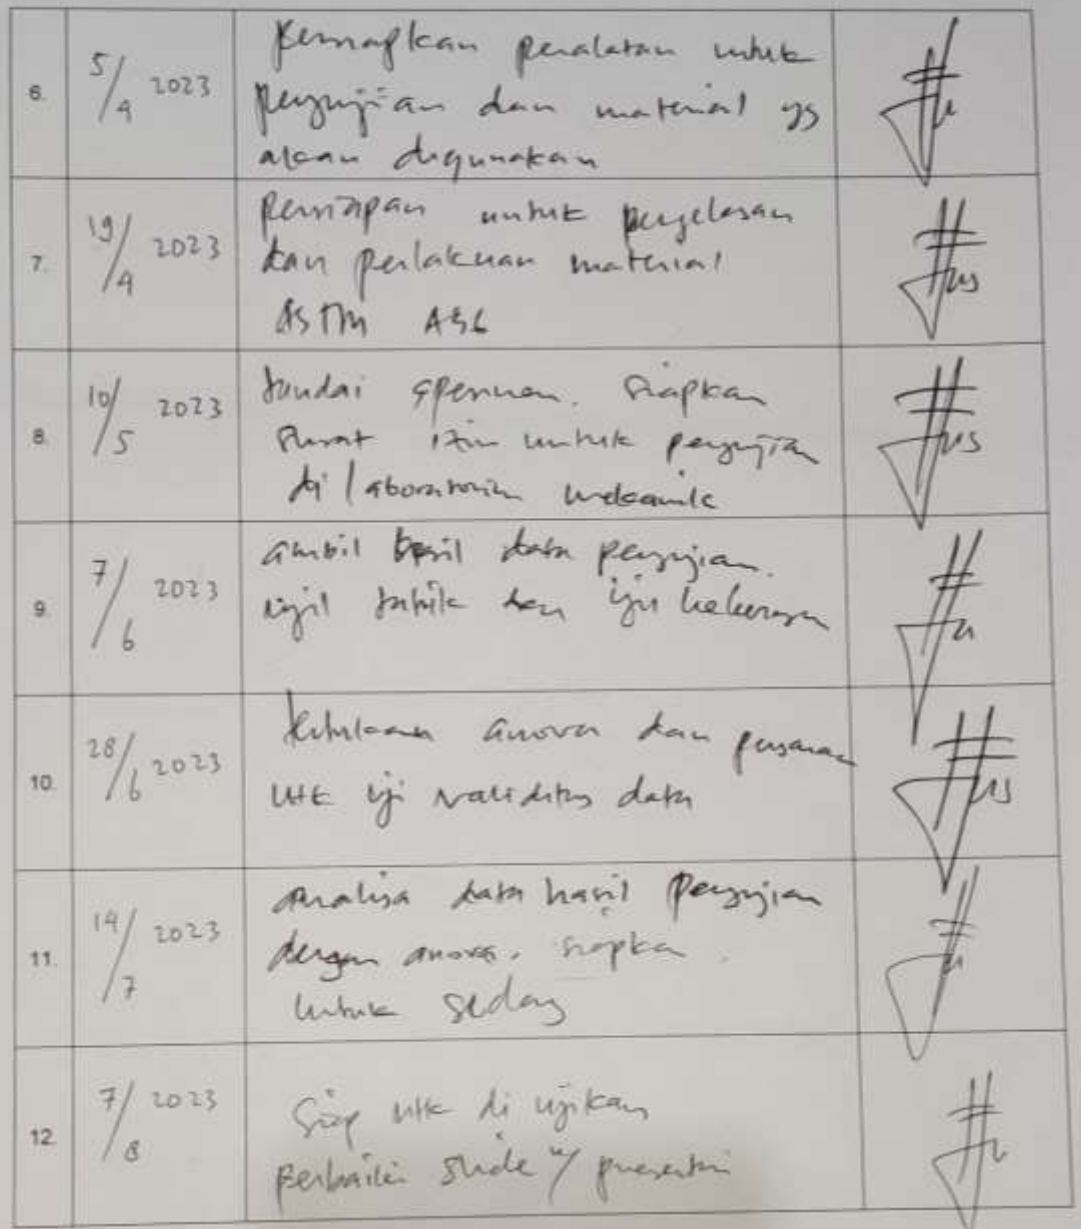 6.
5/4 2023
peralatan untuk
pengujian dan material yg
akan digunakan
7.
19/4 2023
Persiapan untuk pengelasan
dan perlakuan material
ASTM A36
8.
10/5 2023
tandai spesimen. Siapkan
Surat izin untuk pengujian
di laboratorium mekanik
9.
7/6 2023
ambil hasil data pengujian.
uji tarik dan uji kekerasan
10.
28/6 2023
anova dan
utk uji validitas data
11.
14/7 2023
Analisa data hasil pengujian
dengan anova. siapkan
untuk sidang
12.
7/8 2023
Siap utk di ujikan
perbaiki slide u/ presentasi